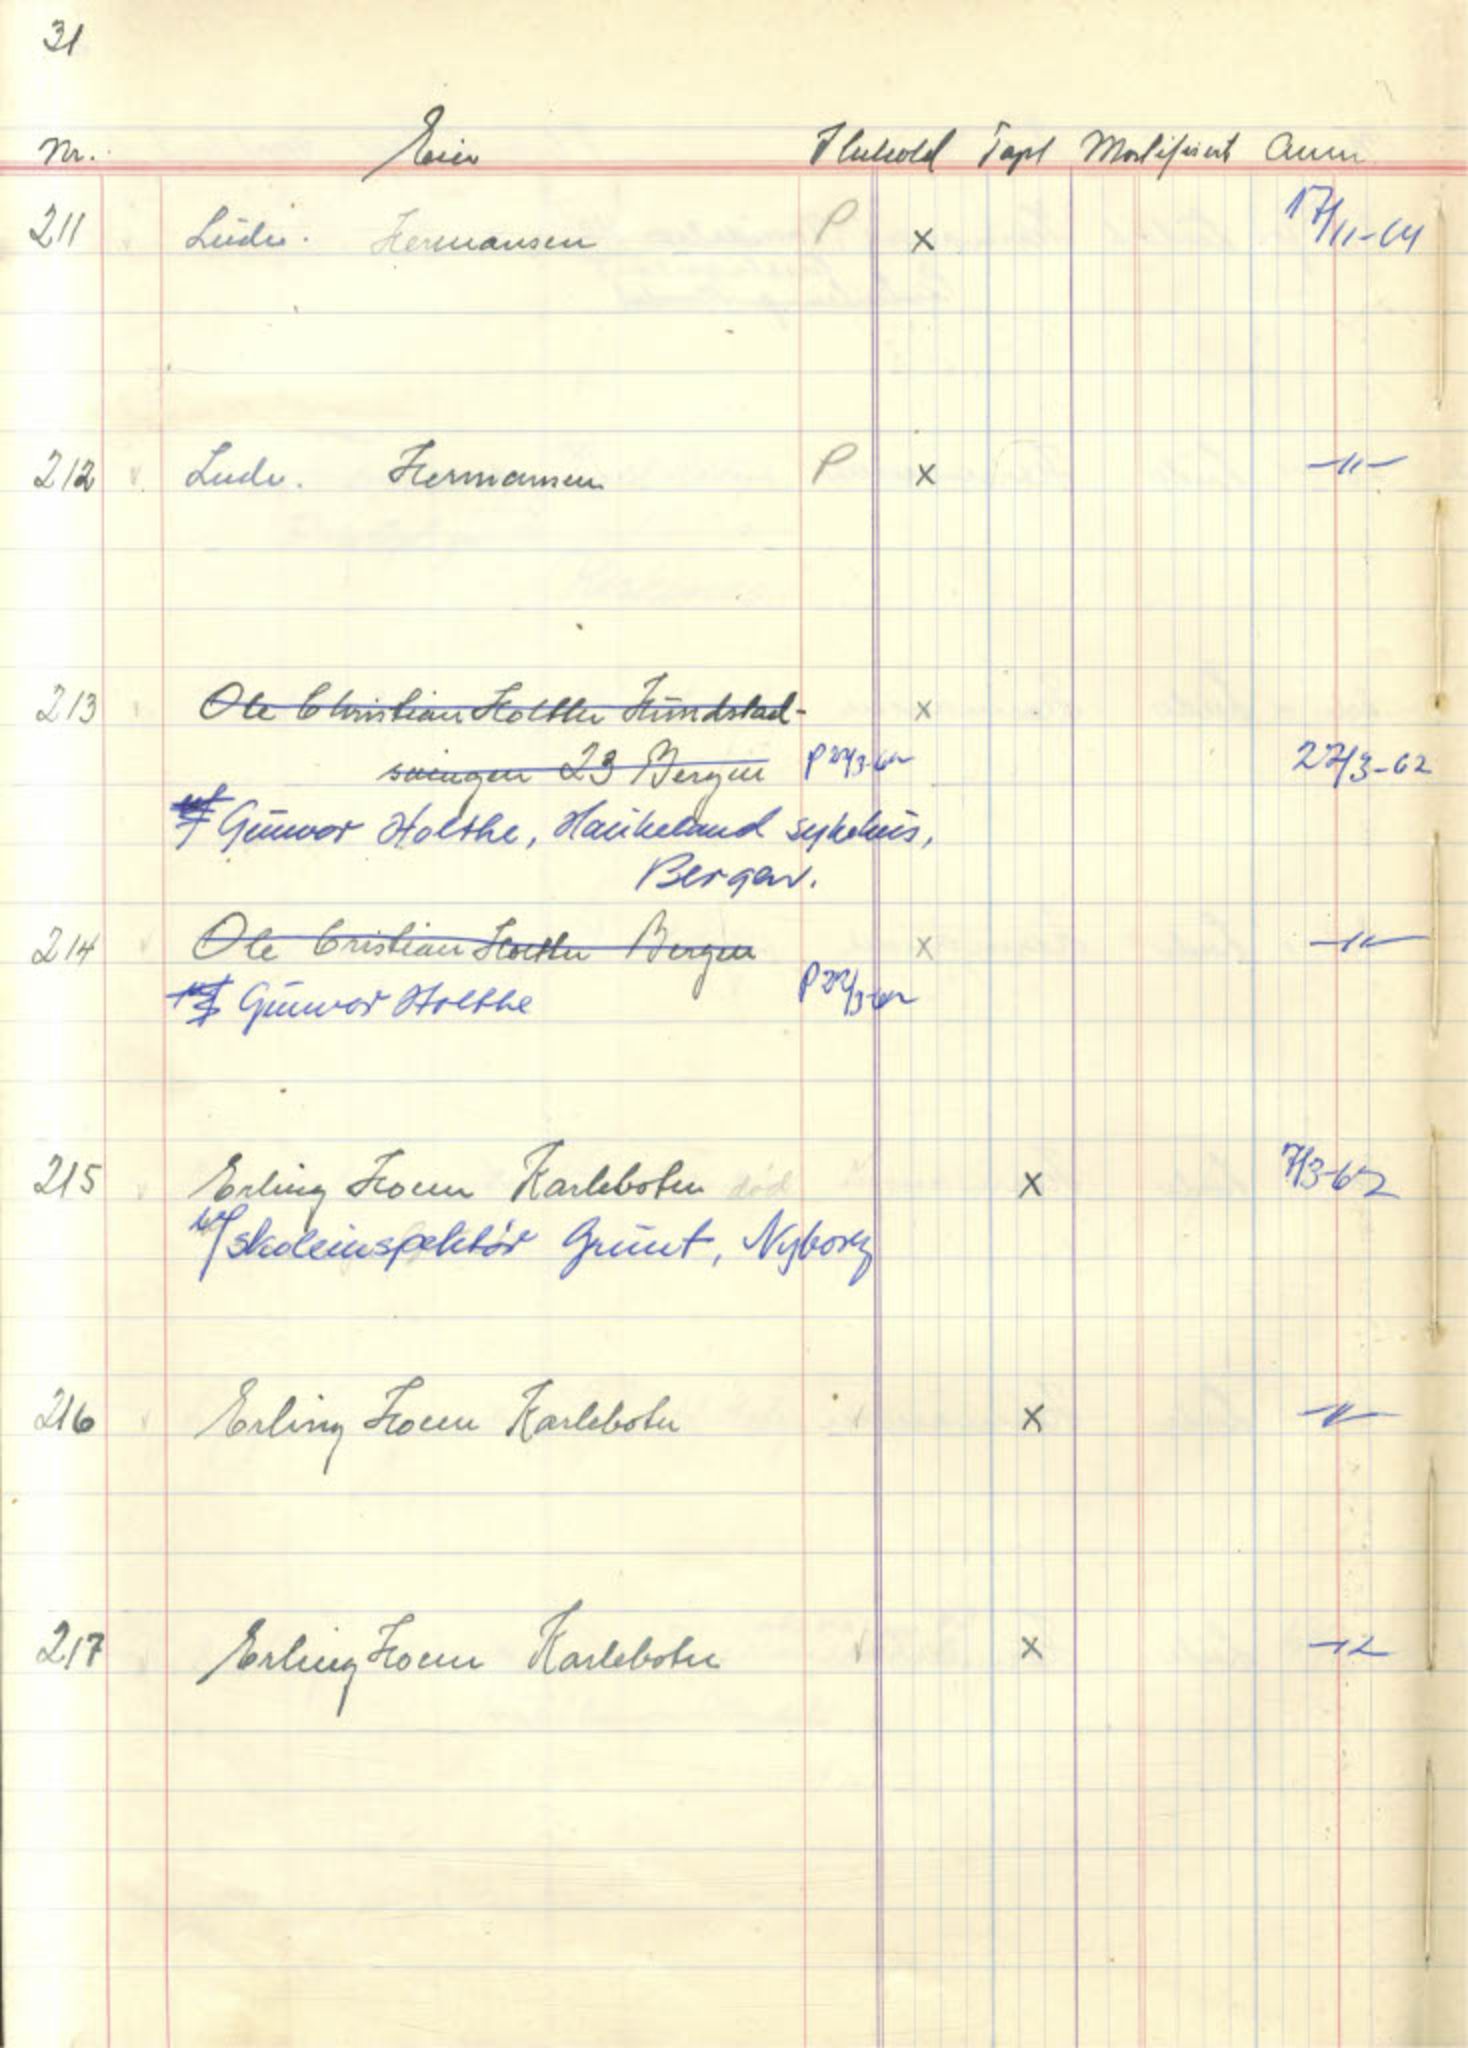 31
Nr. Eier Ihuhold Tapt Mortifisert Anm
211 Ludv. Hermansen P x 17/11-64
212 v. Ludv. Hermansen P x -"-
213 Ole Christian Holthe Hundstad- x
svingen 23 Bergen P 22/3-62 27/3-62
Gunvor Holthe, Haukeland sykehus,
Bergen.
214 Ole Cristian Holthe Bergen x -"-
Gunvor Holthe P 22/3-62
215 Erling Hoem Karlebotn død x 7/3-62
v/ skoleinspektør Grunt, Nyborg
216 Erling Hoem Karlebotn x -"-
217 Erling Hoem Karlebotn v x -"-